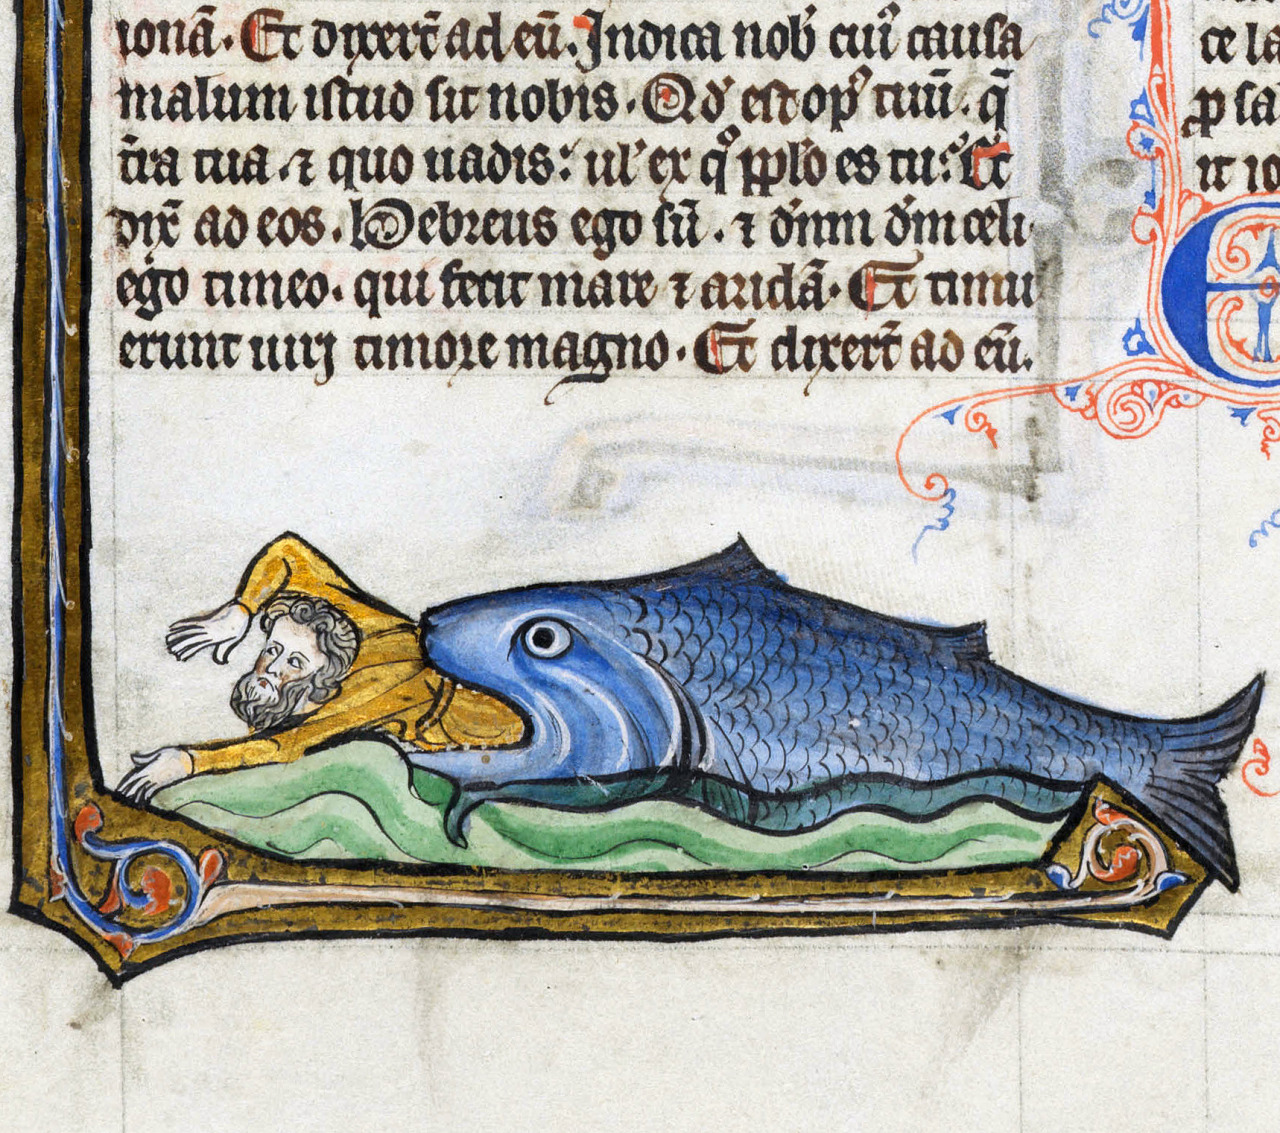 ionā. Et dixer̄t ad eū. Indica nob̛ cui᷒ causa
malum istud sit nobis. Qd̛ est op᷒ tuū. q̄
t̄ra tua. ⁊ quo uadis: ul̛ ex q° pp̄lo es tu: Et
dix̄ ad eos. Hebreus ego sū. ⁊ dn̄m dm̄ celi
ego timeo. qui fecit mare ⁊ aridā. Et timu
erunt uiri timore magno. Et dixer̄t ad eū.
ce la
p̄ sa
it io
E